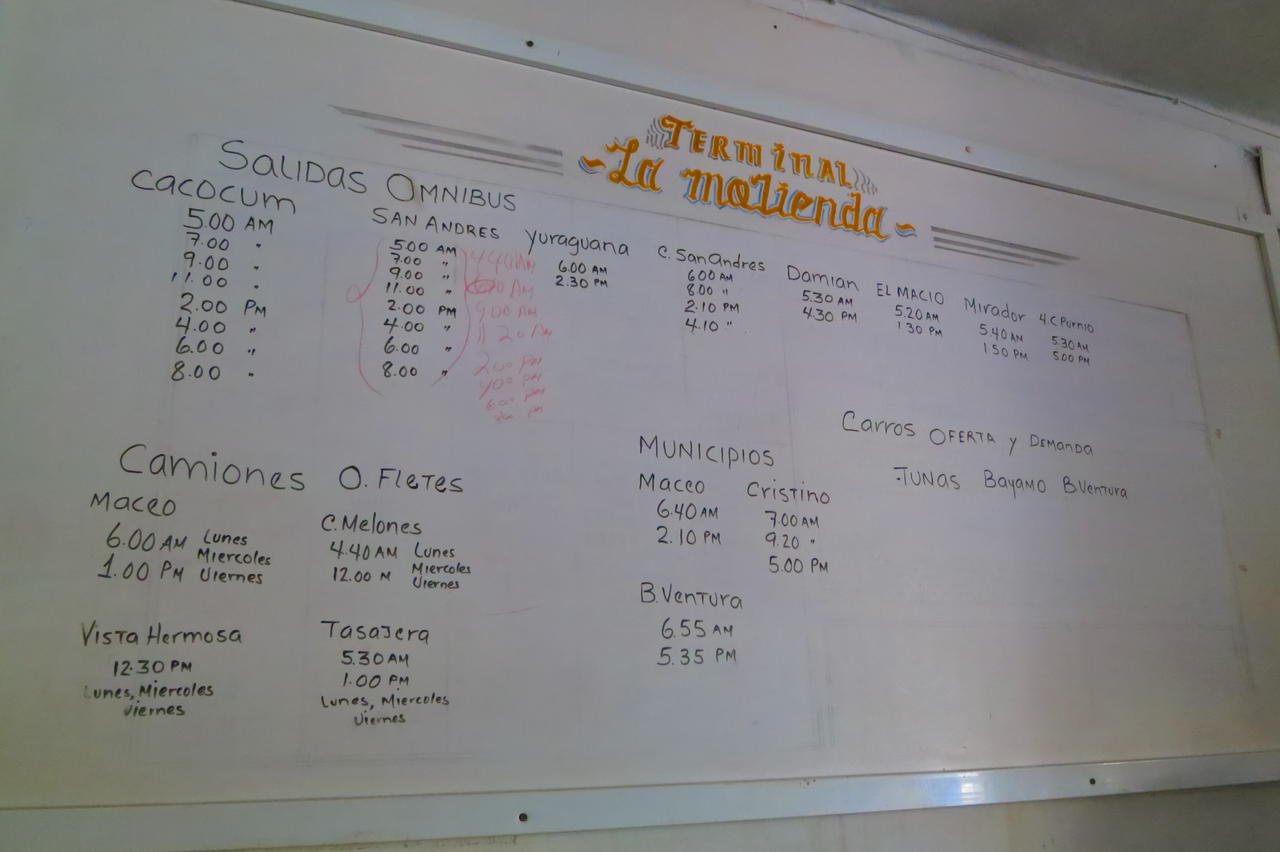 TERMINAL
~La molienda~
SALIDAS OMNIBUS
CACOCUM
5.00 AM
7.00 "
9.00 "
11.00 "
2.00 PM
4.00 "
6.00 "
8.00 "
SAN ANDRES
5.00 AM
7.00 "
9.00 "
11.00 "
2.00 PM
4.00 "
6.00 "
8.00 "
4.40 AM
AM
9.00 AM
11 20 AM
2.00 PM
4.00 PM
6.00 PM
PM
Yuraguana
6.00 AM
2.30 PM
C. San Andres
6.00 AM
8.00 "
2.10 PM
4.10 "
Damian
5.30 AM
4.30 PM
EL MACIO
5.20 AM
1.30 PM
Mirador
5.40 AM
1.50 PM
4.C Purnio
5.30 AM
5.00 PM
Camiones O. Fletes
Maceo
6.00 AM Lunes
Miercoles
1.00 PM Viernes
C.Melones
4.40 AM Lunes
12.00 M Miercoles
Viernes
Vista Hermosa
12.30 PM
Lunes, Miercoles
Viernes
Tasajera
5.30 AM
1.00 PM
Lunes, Miercoles
Viernes
MUNICIPIOS
Maceo
6.40 AM
2.10 PM
Cristino
7.00 AM
9.20 "
5.00 PM
B.Ventura
6.55 AM
5.35 PM
Carros OFERTA y DEMANDA
-TUNAS Bayamo B.Ventura